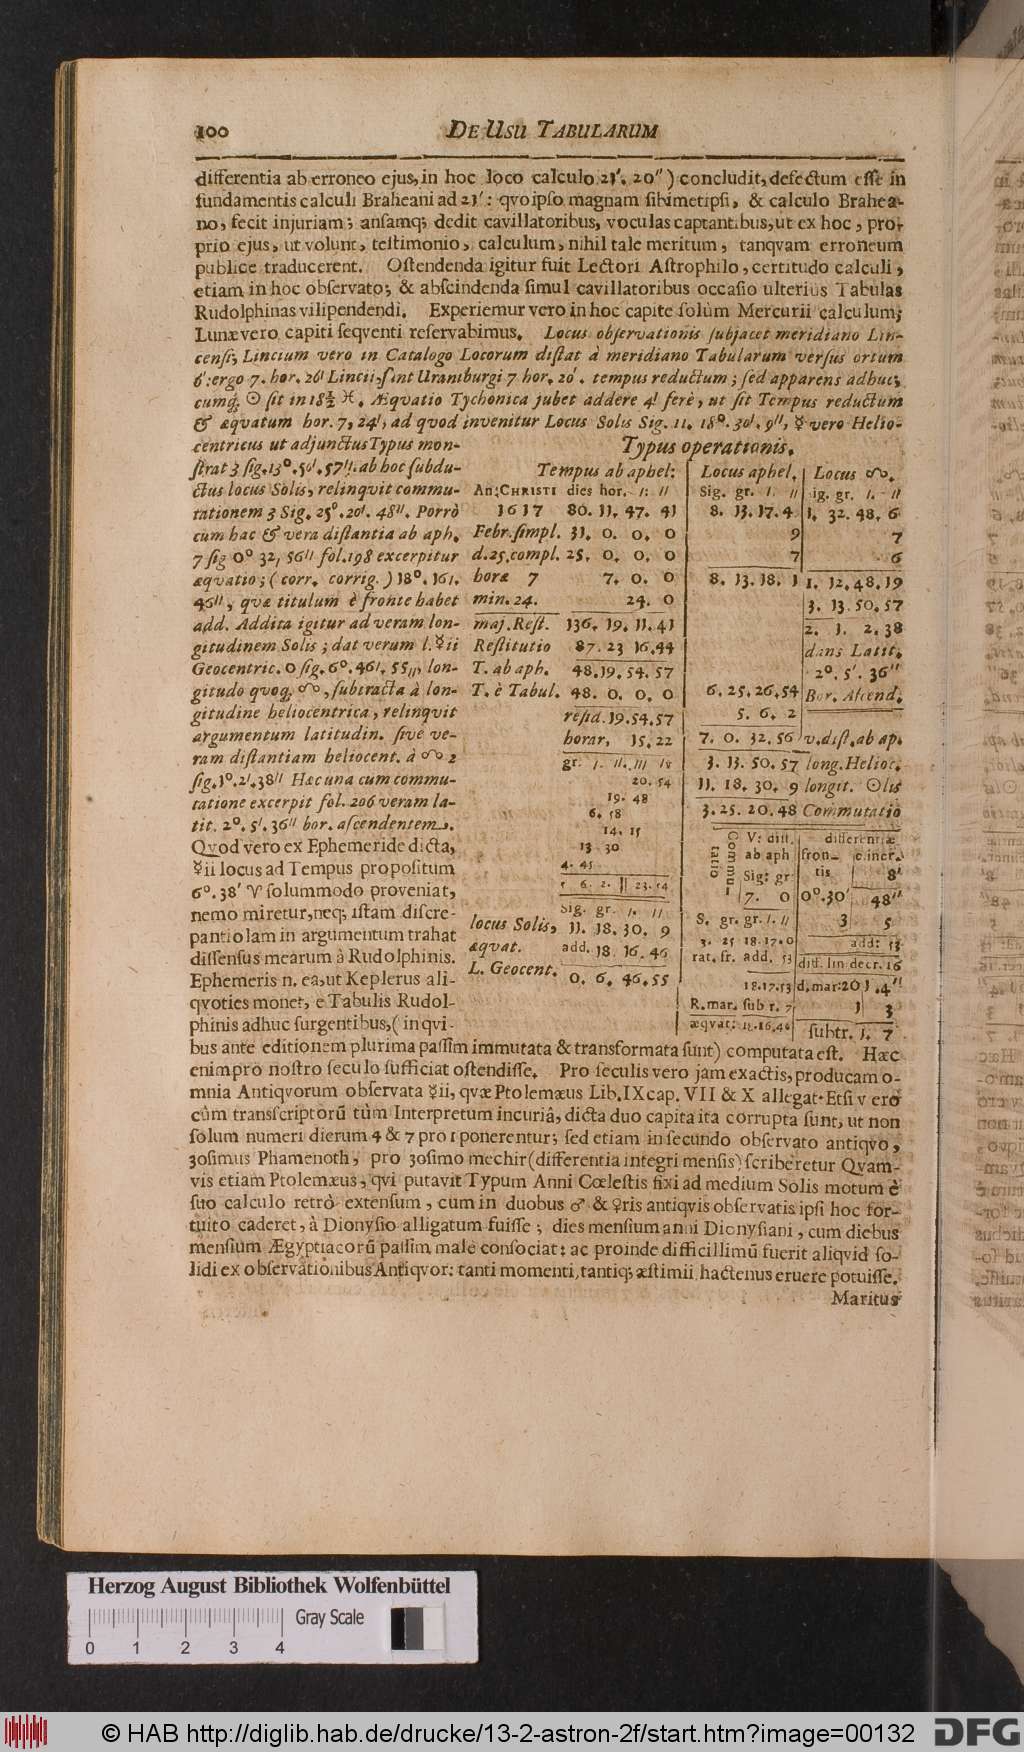 100 DE USU TABULARUM
differentia ab erroneo ejus, in hoc loco calculo 21′. 20″) concludit, defectum esse in
fundamentis calculi Braheani ad 21′: qvo ipso magnam sibimetipsi, & calculo Brahea-
no, fecit injuriam; ansamq; dedit cavillatoribus, voculas captantibus, ut ex hoc, pro-
prio ejus, ut volunt, testimonio, calculum, nihil tale meritum, tanqvam erroneum
publice traducerent. Ostendenda igitur fuit Lectori Astrophilo, certitudo calculi,
etiam in hoc observato; & abscindenda simul cavillatoribus occasio ulterius Tabulas
Rudolphinas vilipendendi. Experiemur vero in hoc capite solùm Mercurii calculum;
Lunæ vero capiti seqventi reservabimus. Locus observationis subjacet meridiano Lin-
censi; Lincium vero in Catalogo Locorum distat à meridiano Tabularum versus ortum
6′: ergo 7. hor. 26′ Lincii, sint Uraniburgi 7 hor. 20′. tempus reductum; sed apparens adhuc;
cumq; ☉ sit in 18½ ♓. Æqvatio Tychonica jubet addere 4′ ferè, ut sit Tempus reductum
& æqvatum hor. 7, 24′, ad qvod invenitur Locus Solis Sig. 11. 18°. 30′. 9″, ☿ vero Helio-
centricus ut adjunctus Typus mon-
strat 3 sig. 13°. 50′. 57″. ab hoc subdu-
ctus locus Solis, relinqvit commu-
tationem 3 Sig. 25°. 20′. 48″. Porrò
cum hac & vera distantia ab aph.
7 sig 0° 32, 56″ fol. 198 excerpitur
æqvatio; (corr. corrig.) 18°. 16′.
46″, qvæ titulum è fronte habet
add. Addita igitur ad veram lon-
gitudinem Solis; dat verum l. ☿ii
Geocentric. 0 sig. 6°. 46′. 55″, lon-
gitudo qvoq. ☊, subtracta à lon-
gitudine heliocentrica, relinqvit
argumentum latitudin. sive ve-
ram distantiam heliocent. à ☊ 2
sig. 1°. 2′. 38″ Hæc una cum commu-
tatione excerpit fol. 206 veram la-
tit. 2°. 5′. 36″ bor. ascendentem.
Qvod vero ex Ephemeride dicta,
☿ii locus ad Tempus propositum
6°. 38′ ♈ solummodo proveniat,
nemo miretur, neq; istam discre-
pantiolam in argumentum trahat
dissensus mearum à Rudolphinis.
Ephemeris n. ea, ut Keplerus ali-
qvoties monet, e Tabulis Rudol-
phinis adhuc surgentibus, (in qvi-
Typus operationis.
Tempus ab aphel: Locus aphel. Locus ☊.
An: CHRISTI dies hor. ′. ″ Sig. gr. ′. ″ ig. gr. ′. ″
1617 80. 11. 47. 41 8. 13. 17. 4 1. 32. 48. 6
Febr. simpl. 31. 0. 0. 0 9 7
d. 25. compl. 25. 0. 0. 0 7 6
horæ 7 7. 0. 0 8. 13. 18. 1 1. 12. 48. 19
min. 24. 24. 0 3. 13. 50. 57
maj. Rest. 136. 19. 11. 41 2. 1. 2. 38
Restitutio 87. 23 16. 44 dans Latit.
T. ab aph. 48. 19. 54. 57 2°. 5′. 36″
T. è Tabul. 48. 0. 0. 0 6. 25. 26. 54 Bor. Ascend.
resid. 19. 54. 57 5. 6. 2
horar, 15. 22 7. 0. 32. 56 v. dist. ab ap.
gr. ′. ″. ‴ 3. 13. 50. 57 long. Helioc.
20. 54 11. 18. 30. 9 longit. ☉lis
19. 48 3. 25. 20. 48 Commutatio
6. 58
14. 15
13. 30
4. 45
5 6. 2. || 23. 54
Commutatio V: dist. differentiæ
ab aph fron- c. incr.
Sig: gr tis 8′
7. 0 0°. 30′ 48″
S. gr. gr. ′. ″ 3 5
3. 25 18. 17. 0 add: 53
rat. fr. add. 53 diff. lin decr. 16
18. 17. 53 d, mar: 20 1. 4″
R. mar. sub r. 7 1 3
æqvat: 18. 16. 46 subtr. 1. 7
Sig. gr. ′. ″
locus Solis, 11. 18. 30. 9
æqvat. add. 18. 16. 46
L. Geocent. 0. 6. 46. 55
bus ante editionem plurima passim immutata & transformata sunt) computata est. Hæc
enim pro nostro seculo sufficiat ostendisse. Pro seculis vero jam exactis, producam o-
mnia Antiqvorum observata ☿ii, qvæ Ptolemæus Lib. IX cap. VII & X allegat. Etsi vero
cùm transcriptorũ tùm Interpretum incuriâ, dicta duo capita ita corrupta sunt, ut non
solum numeri dierum 4 & 7 pro 1 ponerentur; sed etiam in secundo observato antiqvo,
30simus Phamenoth, pro 30simo mechir (differentia integri mensis) scriberetur Qvam-
vis etiam Ptolemæus, qvi putavit Typum Anni Cœlestis fixi ad medium Solis motum è
suo calculo retrò extensum, cum in duobus ♂ & ♀ris antiqvis observatis ipsi hoc for-
tuito caderet, à Dionysio alligatum fuisse; dies mensium anni Dionysiani, cum diebus
mensium Ægyptiacorũ passim male consociat: ac proinde difficillimũ fuerit aliqvid so-
lidi ex observationibus Antiqvor: tanti momenti, tantiq; æstimii, hactenus eruere potuisse.
Maritus
Herzog August Bibliothek Wolfenbüttel
Gray Scale
0 1 2 3 4
© HAB http://diglib.hab.de/drucke/13-2-astron-2f/start.htm?image=00132
DFG